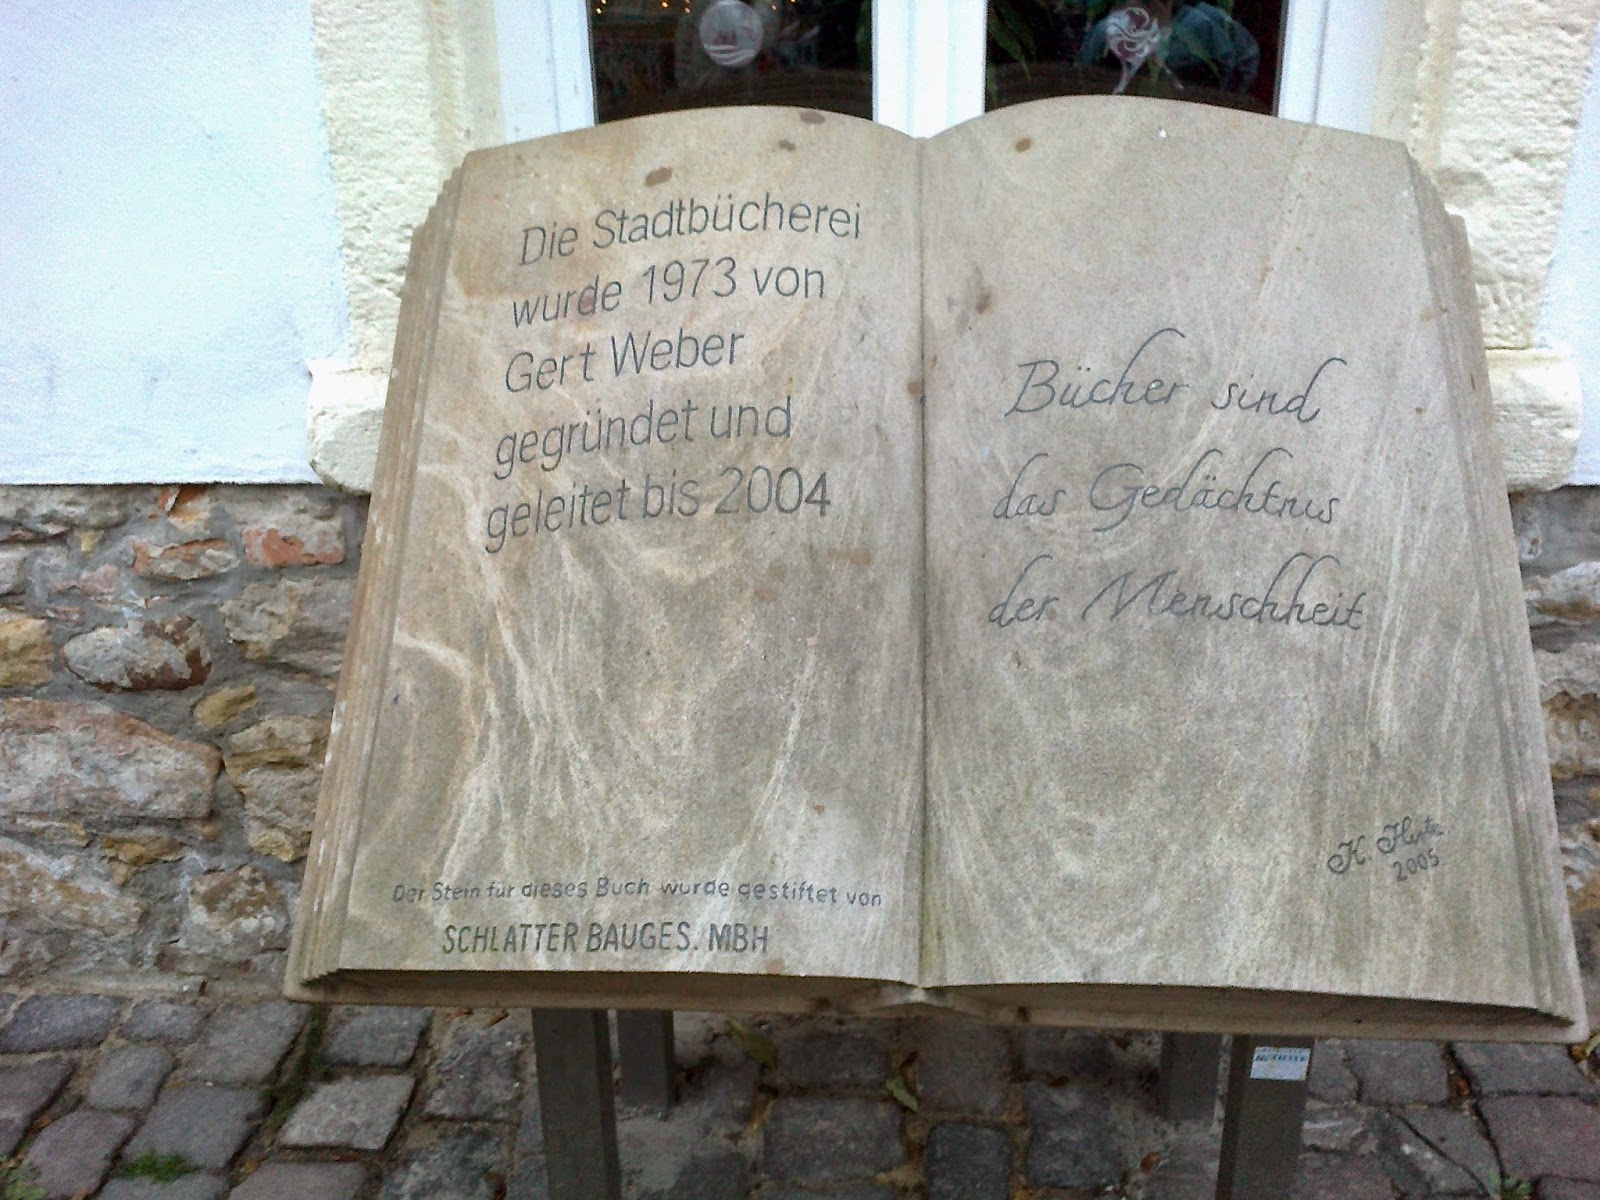 Die Stadtbücherei
wurde 1973 von
Gert Weber
gegründet und
geleitet bis 2004
Der Stein für dieses Buch wurde gestiftet von
SCHLATTER BAUGES. MBH
Bücher sind
das Gedächtnis
der Menschheit
K.
2005